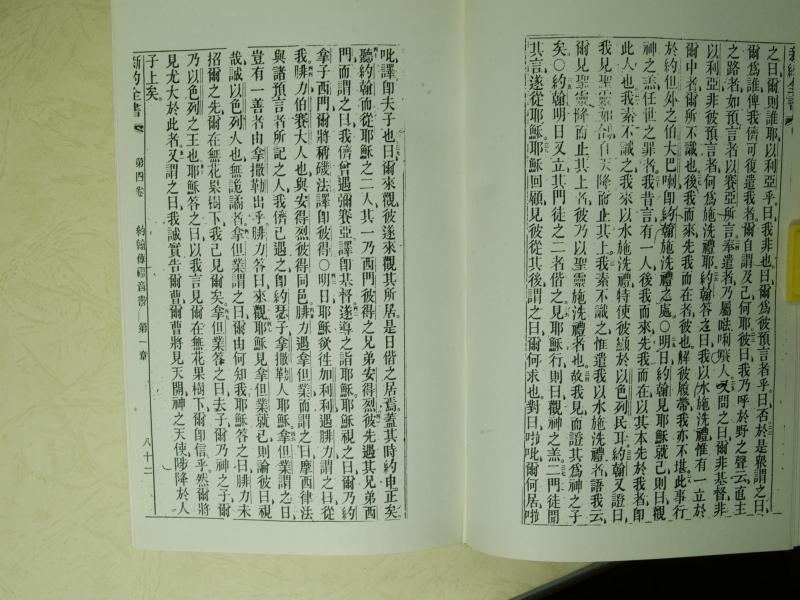 新約全書
之曰爾則誰耶以利亞乎曰我非也曰爾爲彼預言者乎曰否於是衆謂之曰
爾爲誰俾我儕可復遣我者爾自謂及己何耶彼曰我乃呼於野之聲云直主
之路者如預言者以賽亞所言奉遣者乃屬𠵽唎㘔人又問之曰爾非基督非
以利亞非彼預言者何爲施洗禮耶約翰答之曰我以水施洗禮惟有一立於
爾中者爾所不識也後我而來先我而在者彼也解彼履帶我亦不堪此事行
於約但外之伯大巴喇卽約翰施洗禮之處〇明日約翰見耶穌就己則曰觀
神之羔任世之罪者我昔言有一人後我而來先我而在以其本先於我者卽
此人也我素不識之我來以水施洗禮特使彼顯於以色列民耳約翰又證曰
我見聖靈如鴿自天降而止其上我素不識之惟遣我以水施洗禮者語我云
爾見聖靈降而止其上者彼乃以聖靈施洗禮者也故我見而證其爲神之子
矣〇約翰明日又立其門徒之二者偕之見耶穌行則曰觀神之羔二門徒聞
其言遂從耶穌耶穌回顧見彼從其後謂之曰爾何求也對曰㗑吡爾何居㗑
吡譯卽夫子也曰爾來觀彼遂來觀其所居是日偕之居焉蓋其時約申正矣
聽約翰而從耶穌之二人其一乃西門彼得之兄弟安得烈彼先遇其兄弟西
門而謂之曰我儕曾遇彌賽亞譯卽基督遂導之詣耶穌耶穌視之曰爾乃約
拿子西門爾將稱磯法譯卽彼得〇明日耶穌欲徃加利利遇腓力謂之曰從
我腓力伯賽大人也與安得烈彼得同邑腓力遇拿但業而謂之曰摩西律法
與諸預言者所記之人我儕已遇之卽約瑟子拿撒勒人耶穌拿但業謂之曰
豈有一善者由拿撒勒出乎腓力答曰來觀耶穌見拿但業就己則論彼曰視
哉誠以色列人也無詭譎者拿但業謂之曰爾由何知我耶穌答之曰腓力未
招爾之先爾在無花菓樹下我已見爾矣拿但業答之曰夫子爾乃神之子爾
乃以色列之王也耶穌答之曰以我言見爾在無花果樹下爾卽信乎然爾將
見尤大於此者又謂之曰我誠實告爾曹爾曹將見天開神之天使陟降於人
子上矣
新約全書 第四卷 約翰傳福音書 第一章 八十二